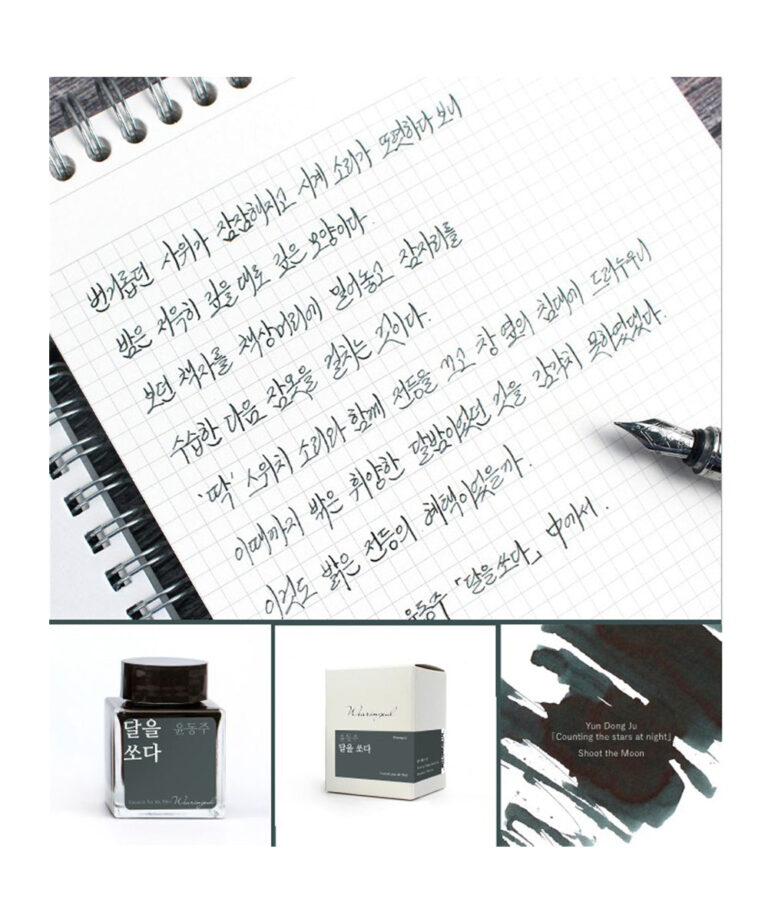 번거롭던 사위가 잠잠해지고 시계 소리가 또렷하다 보니
밤은 저윽히 깊을 대로 깊은 모양이다.
보던 책자를 책상머리에 밀어놓고 잠자리를
수습한 다음 잠옷을 걸치는 것이다.
'딱' 스위치 소리와 함께 전등을 끄고 창 옆의 침대에 드러누우니
이때까지 밖은 휘양한 달밤이었던 것을 감각치 못하였었다.
이것도 밝은 전등의 혜택이었을까.
윤동주 「달을 쏘다」 中에서.
달을
쏘다
윤동주
Wearingeul
Wearingeul
윤동주
달을 쏘다
Yun Dong Ju
「Counting the stars at night」
Shoot the Moon